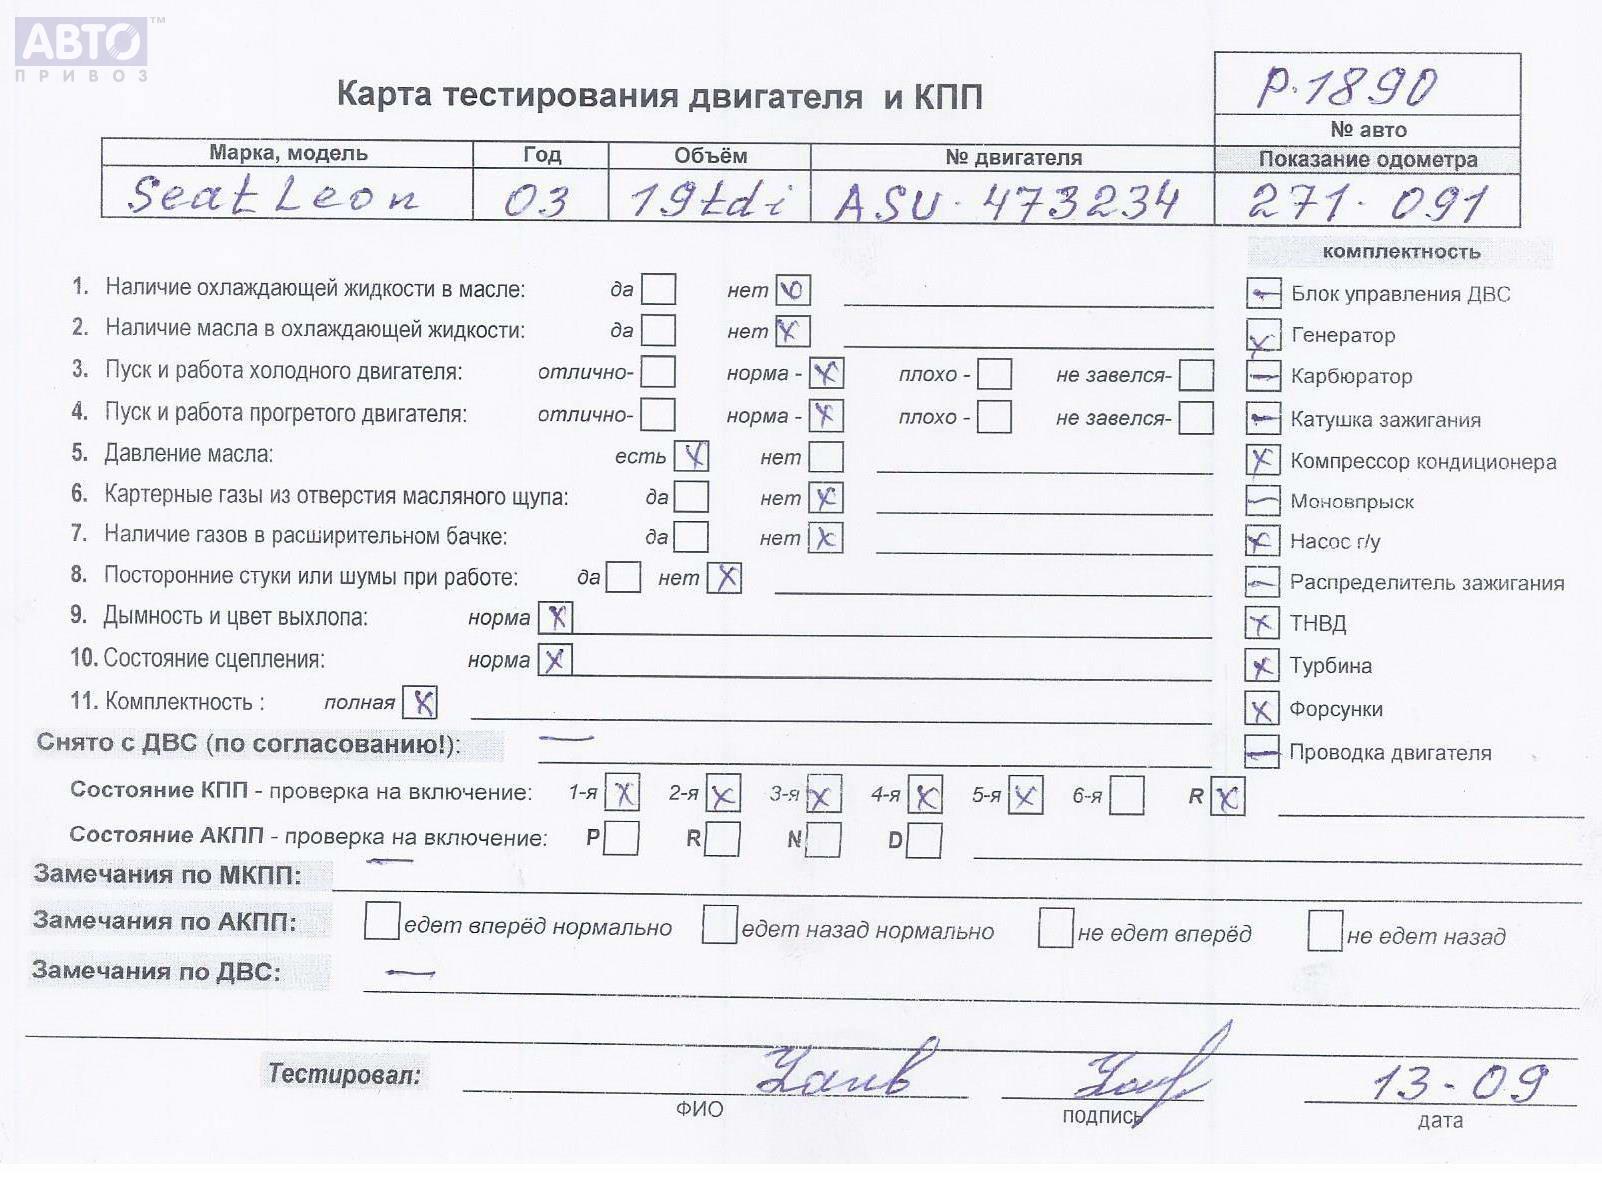 АВТО™
ПРИВОЗ
Карта тестирования двигателя и КПП
Р.1890
№ авто
Марка, модель Год Объём № двигателя Показание одометра
Seat Leon 03 19tdi ASU-473234 271.091
комплектность
1. Наличие охлаждающей жидкости в масле: да нет
Блок управления ДВС
2. Наличие масла в охлаждающей жидкости: да нет
Генератор
3. Пуск и работа холодного двигателя: отлично- норма - плохо - не завелся-
Карбюратор
4. Пуск и работа прогретого двигателя: отлично- норма - плохо - не завелся-
Катушка зажигания
5. Давление масла: есть нет
Компрессор кондиционера
6. Картерные газы из отверстия масляного щупа: да нет
Моновпрыск
7. Наличие газов в расширительном бачке: да нет
Насос г/у
8. Посторонние стуки или шумы при работе: да нет
Распределитель зажигания
9. Дымность и цвет выхлопа: норма
ТНВД
10. Состояние сцепления: норма
Турбина
11. Комплектность : полная
Форсунки
Снято с ДВС (по согласованию!):
Проводка двигателя
Состояние КПП - проверка на включение: 1-я 2-я 3-я 4-я 5-я 6-я R
Состояние АКПП - проверка на включение: P R N D
Замечания по МКПП:
Замечания по АКПП: едет вперёд нормально едет назад нормально не едет вперёд не едет назад
Замечания по ДВС:
Тестировал: 13-09
ФИО подпись дата